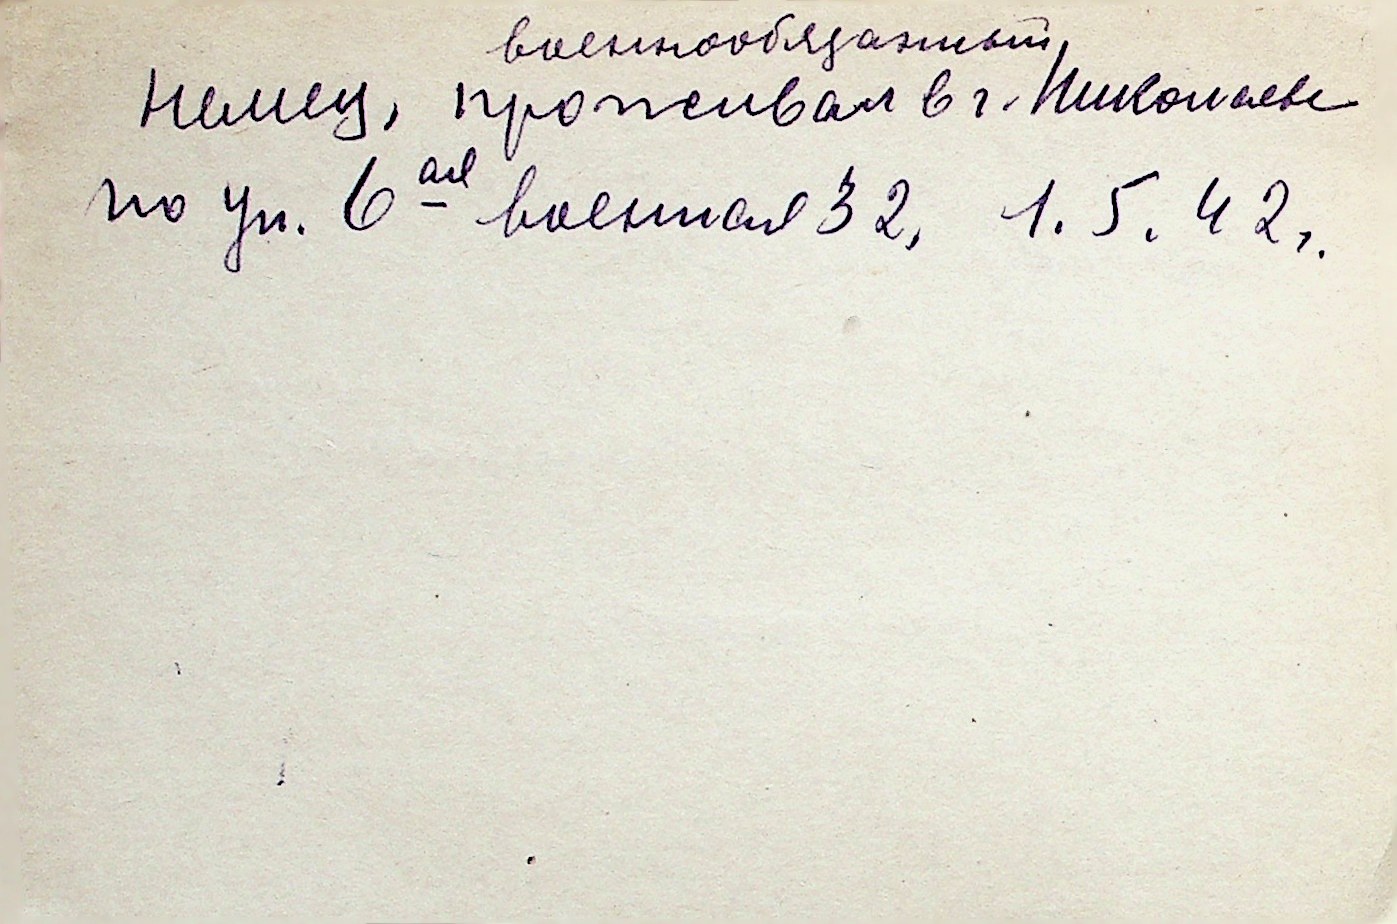 военнообязанный,
Немец, проживал в г. Николаеве
по ул. 6 ая военная 32, 1.5.42 г.